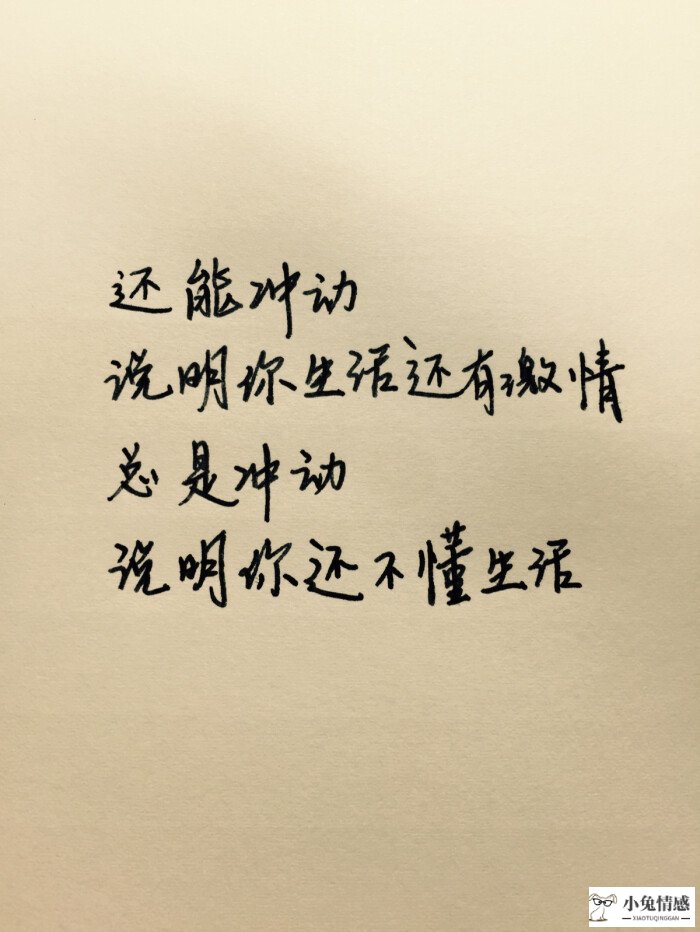 还能冲动
说明你生活还有激情
总是冲动
说明你还不懂生活
小兔情感
XIAOTUQINGGAN